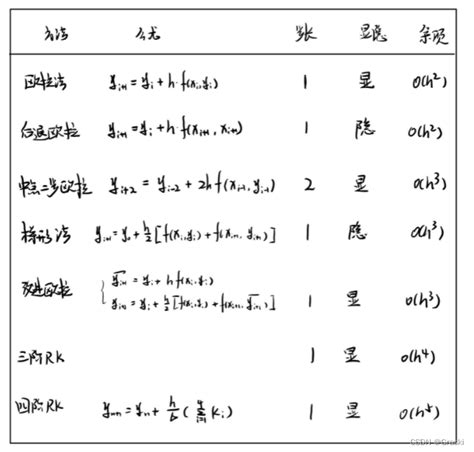 方法 公式 步长 显隐 余项
欧拉法 y_{i+1} = y_i + h·f(x_i, y_i) 1 显 o(h²)
后退欧拉 y_{i+1} = y_i + h·f(x_{i+1}, x_{i+1}) 1 隐 o(h²)
中点二步欧拉 y_{i+2} = y_{i-2} + 2h f(x_{i-1}, y_{i-1}) 2 显 o(h³)
梯形法 y_{i+1} = y_i + h/2 [f(x_i, y_i) + f(x_{i+1}, y_{i+1})] 1 隐 o(h³)
改进欧拉 { ȳ_{i+1} = y_i + h f(x_i, y_i)
y_{i+1} = y_i + h/2 [f(x_i, y_i) + f(x_{i+1}, ȳ_{i+1})] 1 显 o(h³)
三阶RK 1 显 o(h⁴)
四阶RK y_{n+1} = y_n + h/6 (Σ_{i=1}^{4} K_i) 1 显 o(h⁵)